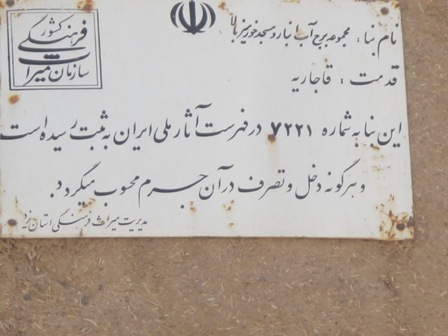 سازمان میراث فرهنگی کشور
نام بنا : مجموعه برج آب انبار و مسجد خورمیز بالا
قدمت : قاجاریه
این بنا به شماره ۷۲۲۱ در فهرست آثار ملی ایران به ثبت رسیده است
و هرگونه دخل و تصرف در آن جرم محسوب میگردد.
مدیریت میراث فرهنگی استان یزد